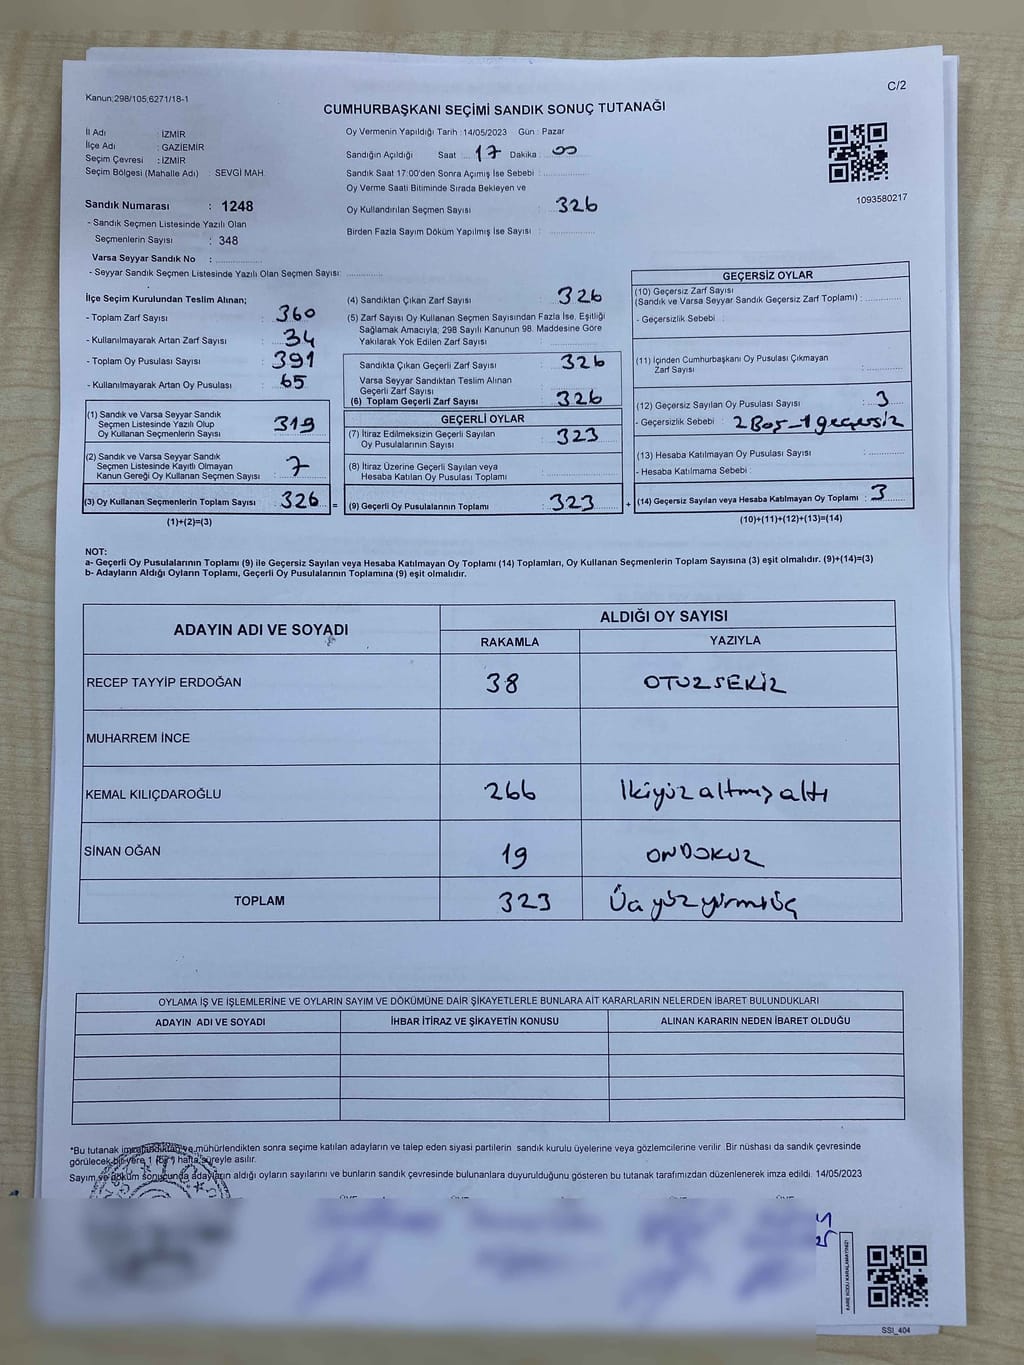 C/2
Kanun:298/105;6271/18-1
CUMHURBAŞKANI SEÇİMİ SANDIK SONUÇ TUTANAĞI
1093580217
İl Adı : İZMİR
İlçe Adı : GAZİEMİR
Seçim Çevresi : İZMİR
Seçim Bölgesi (Mahalle Adı) : SEVGİ MAH.
Sandık Numarası : 1248
- Sandık Seçmen Listesinde Yazılı Olan
Seçmenlerin Sayısı : 348
Varsa Seyyar Sandık No : ...............
- Seyyar Sandık Seçmen Listesinde Yazılı Olan Seçmen Sayısı: ............
Oy Vermenin Yapıldığı Tarih : 14/05/2023 Gün : Pazar
Sandığın Açıldığı Saat ... 17 Dakika : 00
Sandık Saat 17:00'den Sonra Açımış İse Sebebi : ...............
Oy Verme Saati Bitiminde Sırada Bekleyen ve
Oy Kullandırılan Seçmen Sayısı : 326
Birden Fazla Sayım Döküm Yapılmış İse Sayısı : ...............
İlçe Seçim Kurulundan Teslim Alınan;
- Toplam Zarf Sayısı : 360
- Kullanılmayarak Artan Zarf Sayısı : 34
- Toplam Oy Pusulası Sayısı : 391
- Kullanılmayarak Artan Oy Pusulası : 65
(1) Sandık ve Varsa Seyyar Sandık
Seçmen Listesinde Yazılı Olup
Oy Kullanan Seçmenlerin Sayısı : 319
(2) Sandık ve Varsa Seyyar Sandık
Seçmen Listesinde Kayıtlı Olmayan
Kanun Gereği Oy Kullanan Seçmen Sayısı : 7
(3) Oy Kullanan Seçmenlerin Toplam Sayısı : 326 =
(1)+(2)=(3)
(4) Sandıktan Çıkan Zarf Sayısı : 326
(5) Zarf Sayısı Oy Kullanan Seçmen Sayısından Fazla İse, Eşitliği
Sağlamak Amacıyla; 298 Sayılı Kanunun 98. Maddesine Göre
Yakılarak Yok Edilen Zarf Sayısı : ...............
Sandıkta Çıkan Geçerli Zarf Sayısı : 326
Varsa Seyyar Sandıktan Teslim Alınan
Geçerli Zarf Sayısı : ...............
(6) Toplam Geçerli Zarf Sayısı : 326
GEÇERLİ OYLAR
(7) İtiraz Edilmeksizin Geçerli Sayılan
Oy Pusulalarının Sayısı : 323
(8) İtiraz Üzerine Geçerli Sayılan veya
Hesaba Katılan Oy Pusulası Toplamı : ...............
(9) Geçerli Oy Pusulalarının Toplamı : 323 +
GEÇERSİZ OYLAR
(10) Geçersiz Zarf Sayısı
(Sandık ve Varsa Seyyar Sandık Geçersiz Zarf Toplamı) : ............
- Geçersizlik Sebebi :
(11) İçinden Cumhurbaşkanı Oy Pusulası Çıkmayan
Zarf Sayısı : ............
(12) Geçersiz Sayılan Oy Pusulası Sayısı : 3
- Geçersizlik Sebebi : 2 Boş - 1 geçersiz
(13) Hesaba Katılmayan Oy Pusulası Sayısı : ............
- Hesaba Katılmama Sebebi :
(14) Geçersiz Sayılan veya Hesaba Katılmayan Oy Toplamı : 3
(10)+(11)+(12)+(13)=(14)
NOT:
a- Geçerli Oy Pusulalarının Toplamı (9) ile Geçersiz Sayılan veya Hesaba Katılmayan Oy Toplamı (14) Toplamları, Oy Kullanan Seçmenlerin Toplam Sayısına (3) eşit olmalıdır. (9)+(14)=(3)
b- Adayların Aldığı Oyların Toplamı, Geçerli Oy Pusulalarının Toplamına (9) eşit olmalıdır.
ADAYIN ADI VE SOYADI ALDIĞI OY SAYISI
RAKAMLA YAZIYLA
RECEP TAYYİP ERDOĞAN 38 OTUZSEKİZ
MUHARREM İNCE
KEMAL KILIÇDAROĞLU 266 İkiyüz altmış altı
SİNAN OĞAN 19 ONDOKUZ
TOPLAM 323 Üç yüz yirmi üç
OYLAMA İŞ VE İŞLEMLERİNE VE OYLARIN SAYIM VE DÖKÜMÜNE DAİR ŞİKAYETLERLE BUNLARA AİT KARARLARIN NELERDEN İBARET BULUNDUKLARI
ADAYIN ADI VE SOYADI İHBAR İTİRAZ VE ŞİKAYETİN KONUSU ALINAN KARARIN NEDEN İBARET OLDUĞU
*Bu tutanak imzalandıktan ve mühürlendikten sonra seçime katılan adayların ve talep eden siyasi partilerin sandık kurulu üyelerine veya gözlemcilerine verilir. Bir nüshası da sandık çevresinde
görülecek bir yere 1 (bir) hafta süreyle asılır.
Sayım ve döküm sonucunda adayların aldığı oyların sayılarını ve bunların sandık çevresinde bulunanlara duyurulduğunu gösteren bu tutanak tarafımızdan düzenlenerek imza edildi. 14/05/2023
KARE KODU KARALAMAYINIZ!
SSI_404